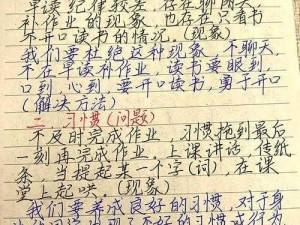 早读纪律较差，存在聊闲天
补作业的现象，也存在只看书
不开口读书的情况。（现象）
我们要杜绝这种现象，不聊天，
不在早读补作业，读书要眼到，
口到，心到，要开口读书，勇于开口
（解决方法）
二、习惯（问题）
不及时完成作业，习惯拖到最后
一刻再完成作业，上课讲话，传纸
条，当提起某一个字（词），在课
堂上起哄。（现象）
我们要养成良好的习惯，对于身